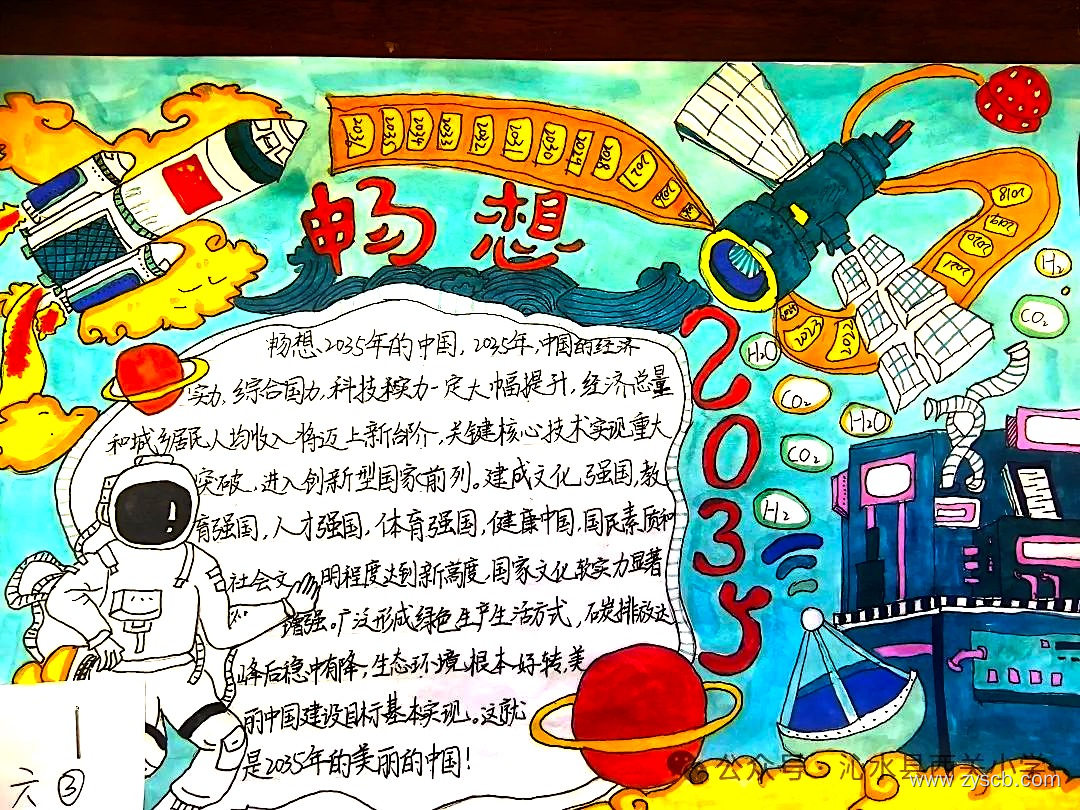 畅想
2035
畅想2035年的中国，2035年，中国的经济
实力，综合国力，科技实力一定大幅提升，经济总量
和城乡居民人均收入将迈上新台阶，关键核心技术实现重大
突破，进入创新型国家前列。建成文化强国，教
育强国，人才强国，体育强国，健康中国，国民素质和
社会文明程度达到新高度，国家文化软实力显著
增强。广泛形成绿色生产生活方式，碳排放达
峰后稳中有降，生态环境根本好转，美
丽中国建设目标基本实现。这就
是2035年的美丽的中国！
2036
2035
2034
2033
2032
2031
2030
2029
2028
2027
2026
2018
2019
2020
2021
2023
H₂
CO₂
H₂O
CO₂
H₂O
CO₂
H₂
六
③
公众号·沁水县
小学
www.zyscb.com